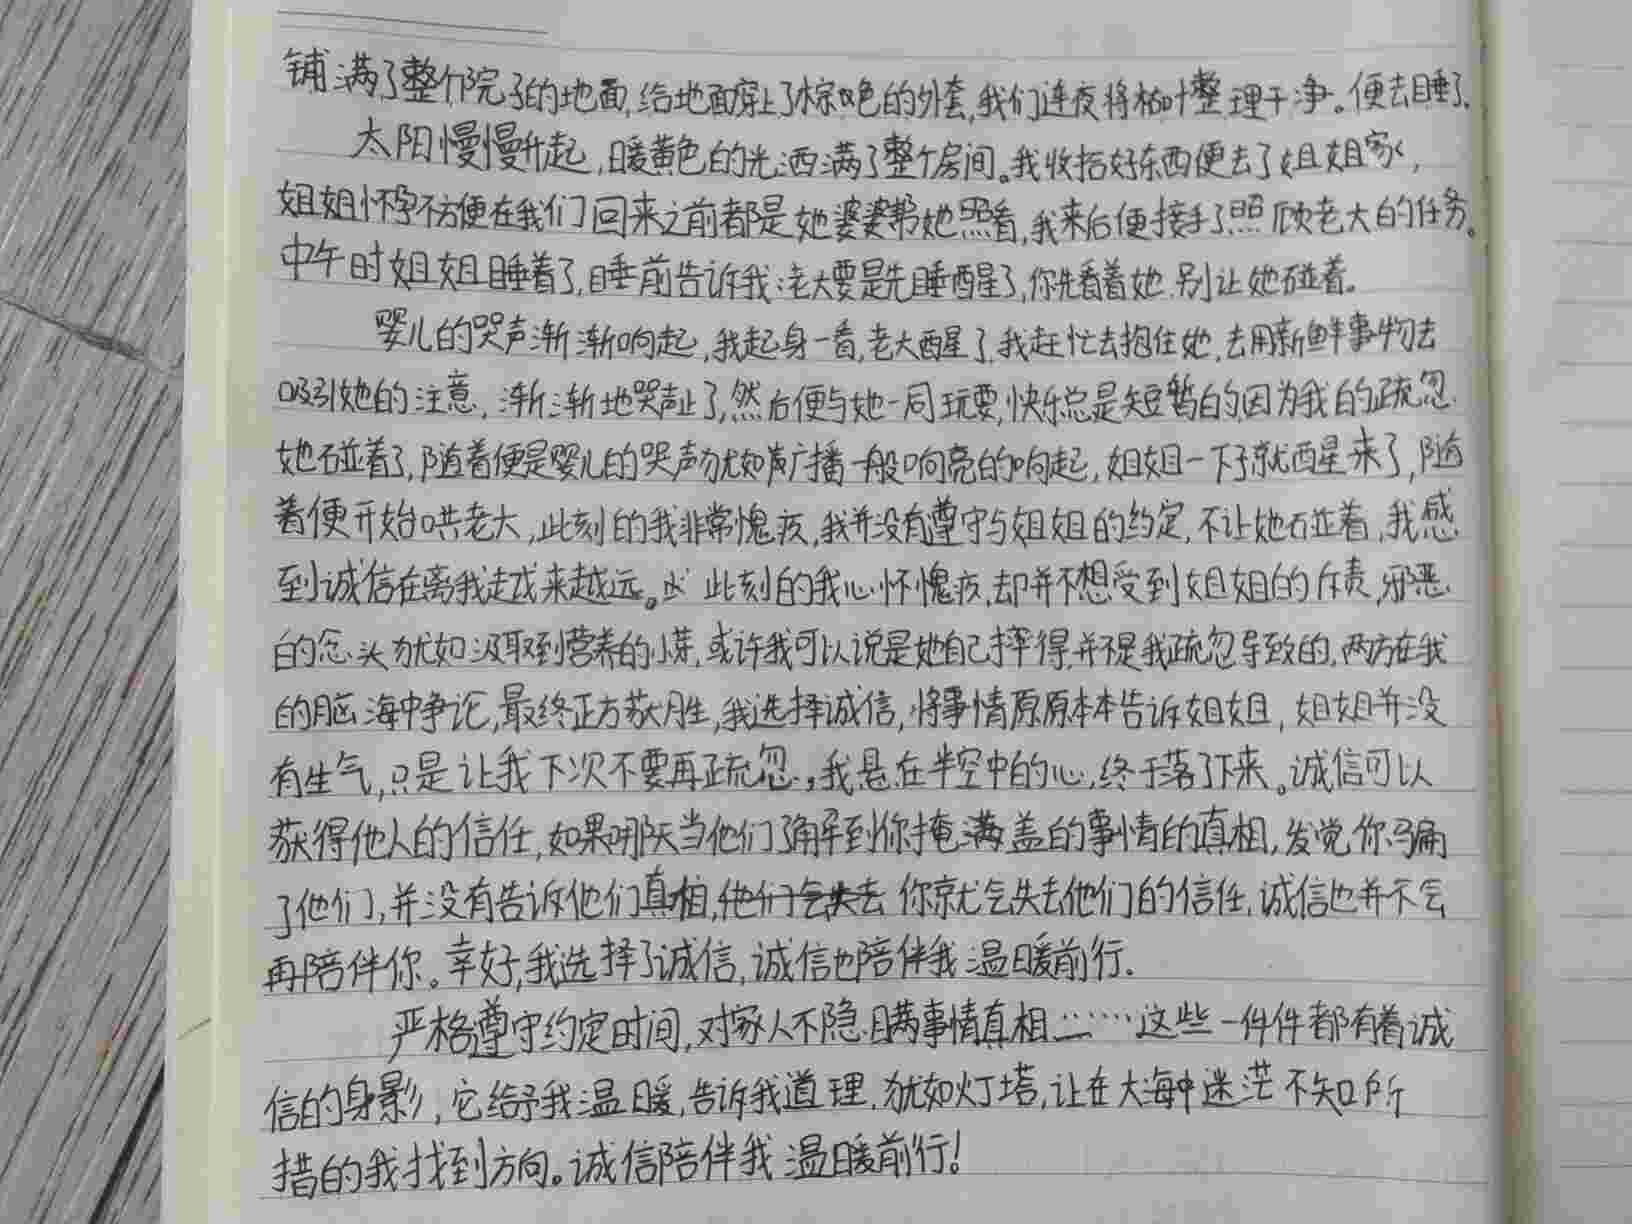 铺满了整个院子的地面,给地面穿上了棕色的外套,我们连夜将树叶整理干净。便去睡了.
太阳慢慢升起,暖黄色的光洒满了整个房间。我收拾好东西便去了姐姐家,
姐姐怀孕不方便在我们回来之前都是她婆婆帮她照看,我来后便接手了照顾老大的任务。
中午时姐姐睡着了,睡前告诉我:老大要是先睡醒了,你先看着她.别让她碰着。
婴儿的哭声渐渐响起,我起身一看,老大醒了,我赶忙去抱住她,去用新鲜事物去
吸引她的注意,渐渐地哭声止了,然后便与她一同玩耍,快乐总是短暂的,因为我的疏忽.
她碰着了,随着便是婴儿的哭声犹如广播一般响亮的响起,姐姐一下子就醒来了,随
着便开始哄老大,此刻的我非常愧疚,我并没有遵守与姐姐的约定,不让她碰着,我感
到诚信在离我越来越远。此刻的我心怀愧疚,却并不想受到姐姐的斥责,邪恶
的念头犹如汲取到营养的小芽,或许我可以说是她自己摔得,并不是我疏忽导致的,两方在我
的脑海中争论,最终正方获胜,我选择诚信,将事情原原本本告诉姐姐,姐姐并没
有生气,只是让我下次不要再疏忽,我悬在半空中的心,终于落了下来。诚信可以
获得他人的信任,如果哪天当他们了解到你掩盖的事情的真相,发觉你骗
了他们,并没有告诉他们真相,他们会失去 你就会失去他们的信任,诚信也并不会
再陪伴你。幸好,我选择了诚信,诚信也陪伴我温暖前行.
严格遵守约定时间,对家人不隐瞒事情真相……这些一件件都有着诚
信的身影,它给予我温暖,告诉我道理,犹如灯塔,让在大海中迷茫不知所
措的我找到方向。诚信陪伴我温暖前行!